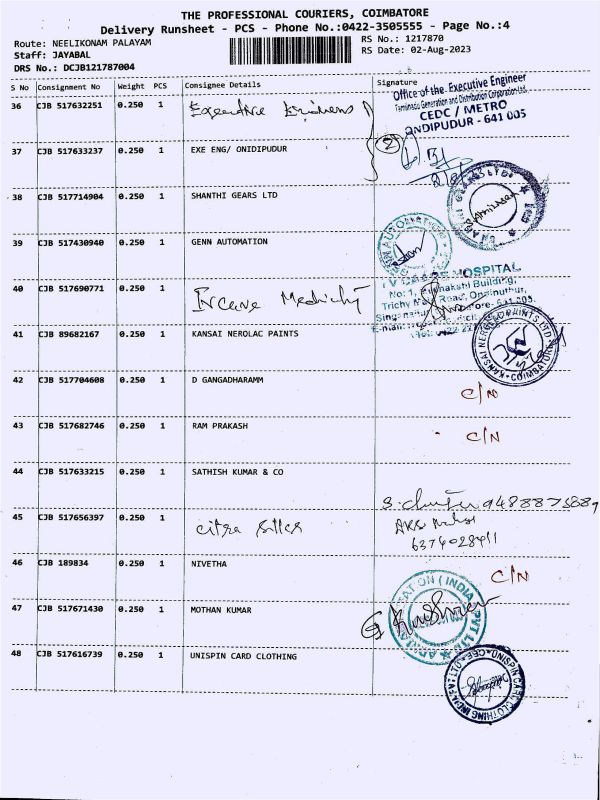 THE PROFESSIONAL COURIERS, COIMBATORE
Delivery Runsheet - PCS - Phone No.:0422-3505555 - Page No.:4
Route: NEELIKONAM PALAYAM
RS No.: 1217870
Staff: JAYABAL
RS Date: 02-Aug-2023
DRS No.: DCJB121787004
S No Consignment No Weight PCS Consignee Details Signature
36 CJB 517632251 0.250 1 Executive
Office of the Executive Engineer
Tamilnadu Generation and Distribution Corporation Ltd.
CEDC / METRO
ONDIPUDUR - 641 005
37 CJB 517633237 0.250 1 EXE ENG/ ONIDIPUDUR
2
38 CJB 517714904 0.250 1 SHANTHI GEARS LTD
39 CJB 517430940 0.250 1 GENN AUTOMATION
40 CJB 517690771 0.250 1
HOSPITAL
No: 1, Building,
Trichy Road, Ondipudur,
41 CJB 89682167 0.250 1 KANSAI NEROLAC PAINTS
KANSAI NEROLAC PAINTS LTD COIMBATORE
42 CJB 517704608 0.250 1 D GANGADHARAMM
C/N
43 CJB 517682746 0.250 1 RAM PRAKASH
C/N
44 CJB 517633215 0.250 1 SATHISH KUMAR & CO
45 CJB 517656397 0.250 1 citra
6374028911
46 CJB 189834 0.250 1 NIVETHA
C/N
47 CJB 517671430 0.250 1 MOTHAN KUMAR
48 CJB 517616739 0.250 1 UNISPIN CARD CLOTHING
UNISPIN CARD CLOTHING